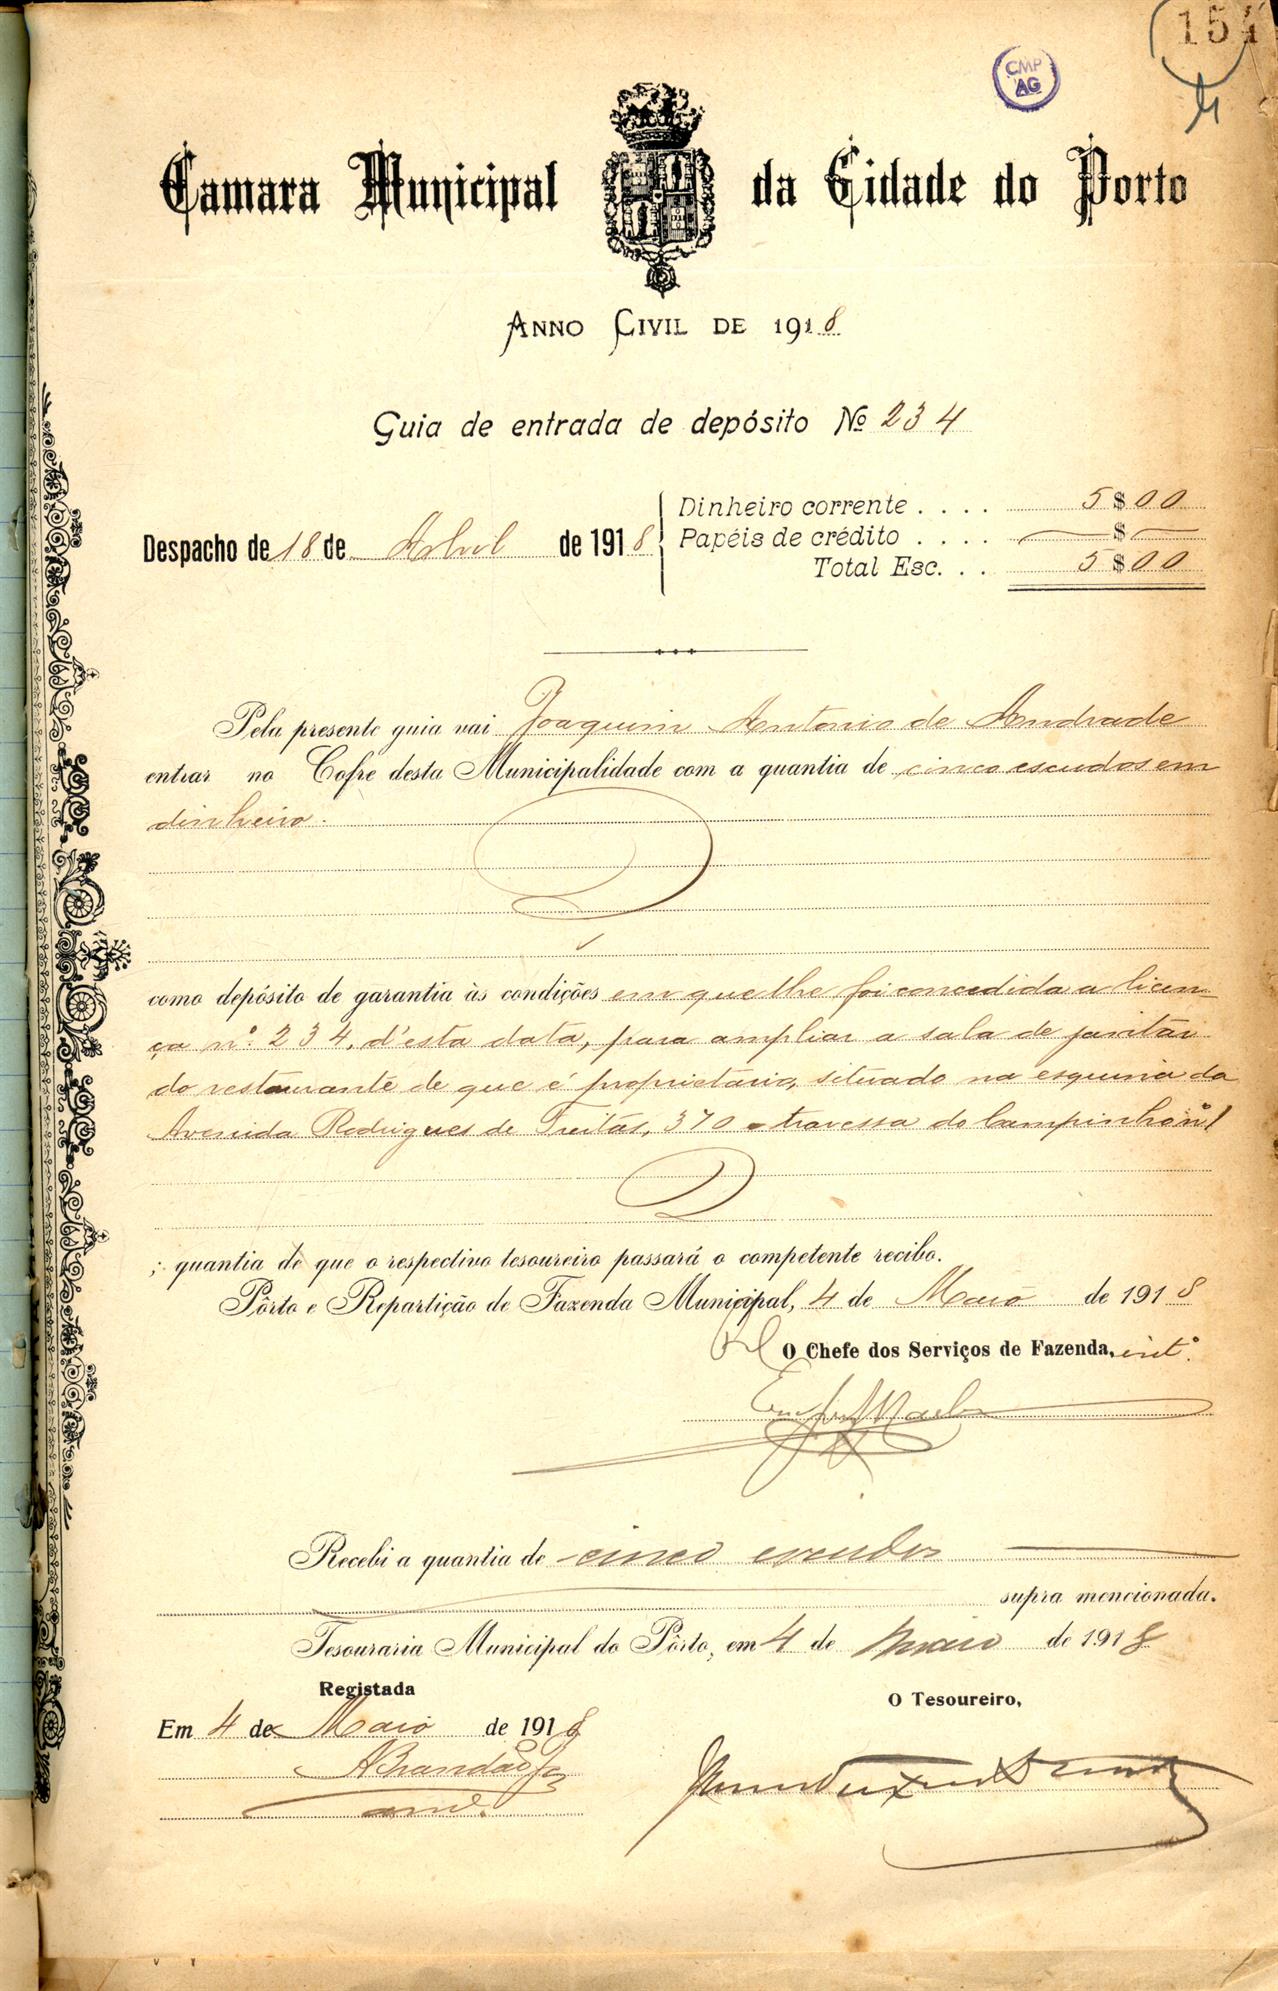 154
CMP
AG
Camara Municipal da Cidade do Porto
ANNO CIVIL DE 1918
Guia de entrada de depósito Nº 234
Dinheiro corrente . . . . 5$00
Despacho de 18 de Abril de 1918
Papéis de crédito . . . . $
Total Esc. . . 5$00
Pela presente guia vai Joaquim Antonio de Andrade
entrar no Cofre desta Municipalidade com a quantia de cinco escudos em
dinheiro.
como depósito de garantia às condições em que lhe foi concedida a licen-
ça n.º 234, d'esta data, para ampliar a sala de jantar
do restaurante de que é proprietario, situado na esquina da
Avenida Rodrigues de Freitas, 370 e travessa do Campinho nº 1
; quantia de que o respectivo tesoureiro passará o competente recibo.
Pôrto e Repartição de Fazenda Municipal, 4 de Maio de 1918
O Chefe dos Serviços de Fazenda, intº.
Recebi a quantia de cinco escudos
supra mencionada.
Tesouraria Municipal do Pôrto, em 4 de maio de 1918
Registada
O Tesoureiro,
Em 4 de Maio de 1918
ABrandão